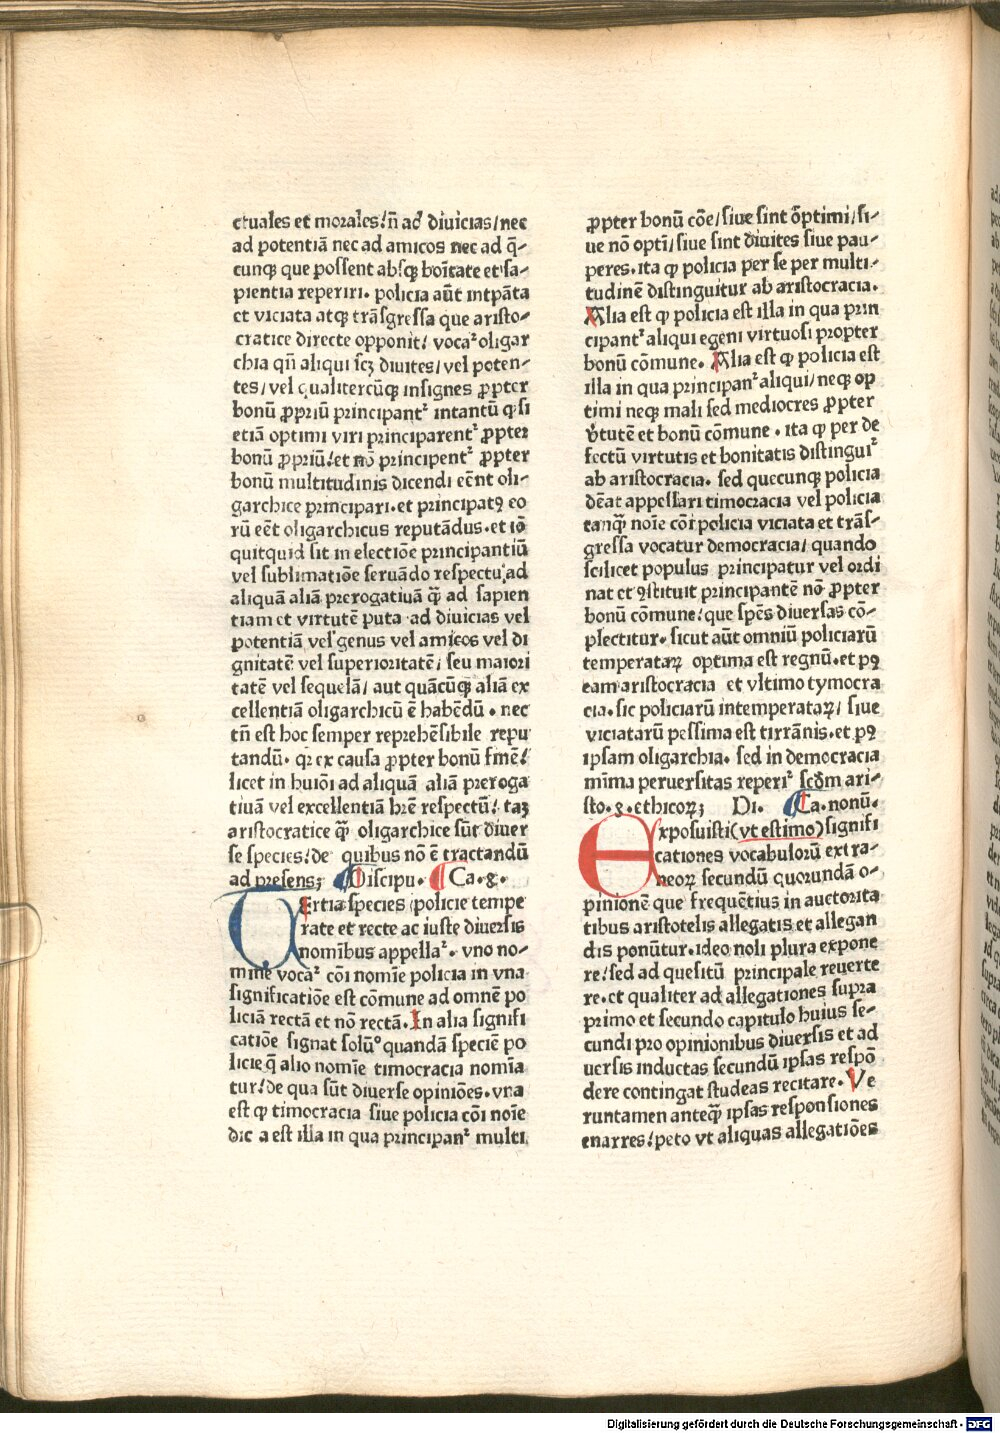 ctuales et morales/n̄ ad diuicias/nec
ad potentiā nec ad amicos nec ad q̄-
cunqꝫ que possent absqꝫ boītate et sa-
pientia reperiri. policia aūt intꝑata
et viciata atqꝫ trāsgressa que aristo-
cratice directe opponit/ vocaᷣ oligar
chia qn̄ aliqui scꝫ diuites/vel poten-
tes/vel qualitercūqꝫ insignes ꝓpter
bonū ꝓpriū principantᷣ intantū ꝙ si
etiā optimi viri principarentᷣ ꝓpter
bonū ꝓpriū/et nō principentᷣ ꝓpter
bonū multitudinis dicendi eēnt oli-
garchice principari.et principatꝰ eo
rū eēt oligarchicus reputādus.et iō
quitquid sit in electiōe principantiū
vel sublimatiōe seruādo respectu ad
aliquā aliā prerogatiuā qꝫ̄ ad sapien
tiam et virtutē puta ad diuicias vel
potentiā vel genus vel amicos vel di
gnitatē vel superioritatē/ seu maiori
tatē vel sequelā/ aut quācūqꝫ aliā ex
cellentiā oligarchicū ē habēdū . nec
tn̄ est hoc semper reprehēsibile repu
tandū. qꝛ ex causa ꝓpter bonū finē/
licet in huiōi ad aliquā aliā preroga
tiuā vel excellentiā hr̄e respectū/ taꝫ
aristocratice qꝫ̄ oligarchice sūt diuer
se species/de quibus nō ē tractandū
ad presens; Discipu. Ca.8.
Tertia species policie tempe
rate et recte ac iuste diuersis
nomībus appellaᷣ. vno no-
mine vocaᷣ cōi nomīe policia in vna
significatiōe est cōmune ad omnē po
liciā rectā et nō rectā. In alia signifi
catiōe signat solū quandā speciē po
licie q̄ alio nomīe timocracia nomīa
tur/de qua sūt diuerse opiniōes.vna
est ꝙ timocracia siue policia cōi noīe
dicta est illa in qua principanᷣ multi
ꝓpter bonū cōe/siue sint optimi/si-
ue nō optī/siue sint diuites siue pau-
peres.ita ꝙ policia per se per multi-
tudinē distinguitur ab aristocracia.
Alia est ꝙ policia est illa in qua prin
cipantᷣ aliqui egeni virtuosi propter
bonū cōmune. Alia est ꝙ policia est
illa in qua principanᷣ aliqui/neqꝫ op
timi neqꝫ mali sed mediocres ꝓpter
v̓tutē et bonū cōmune . ita ꝙ per de
fectū virtutis et bonitatis distinguiᷣ
ab aristocracia. sed quecunqꝫ policia
dēat appellari timocracia vel policia
tanqꝫ̄ noīe cōi policia viciata et trās-
gressa vocatur democracia/ quando
scilicet populus principatur vel ordi
nat et ꝯstituit principantē nō ꝓpter
bonū cōmune/que spēs diuersas cō-
plectitur. sicut aūt omniū policiarū
temperataꝝ optima est regnū.et pꝰ
eam aristocracia et vltimo tymocra
cia. sic policiarū intemperataꝝ/ siue
viciatarū pessima est tirrānis.et pꝰ
ipsam oligarchia. sed in democracia
mīma peruersitas reperiᷣ scdm ari-
sto.8.ethicoꝝ; Di. Ca.nonū.
Exposuisti(vt estimo)signifi
cationes vocabulorū extra-
neoꝝ secundū quorundā o-
pinionē que frequētius in auctorita
tibus aristotelis allegatis et allegan
dis ponūtur.ideo noli plura expone
re/sed ad quesitū principale reuerte
re.et qualiter ad allegationes supra
primo et secundo capitulo huius se-
cundi pro opinionibus diuersis et ad
uersis inductas secundū ipsas respō
dere contingat studeas recitare. Ve
runtamen anteqꝫ̄ ipsas responsiones
enarres/peto vt aliquas allegatiōes
Digitalisierung gefördert durch die Deutsche Forschungsgemeinschaft - DFG